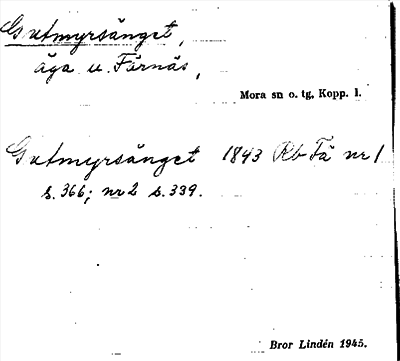 Gutmyrsänget,
äga u. Färnäs,
Mora sn o. tg, Kopp. l.
Gutmyrsänget 1843 Rb Fä nr 1
s. 366; nr 2 s. 339.
Bror Lindén 1945.